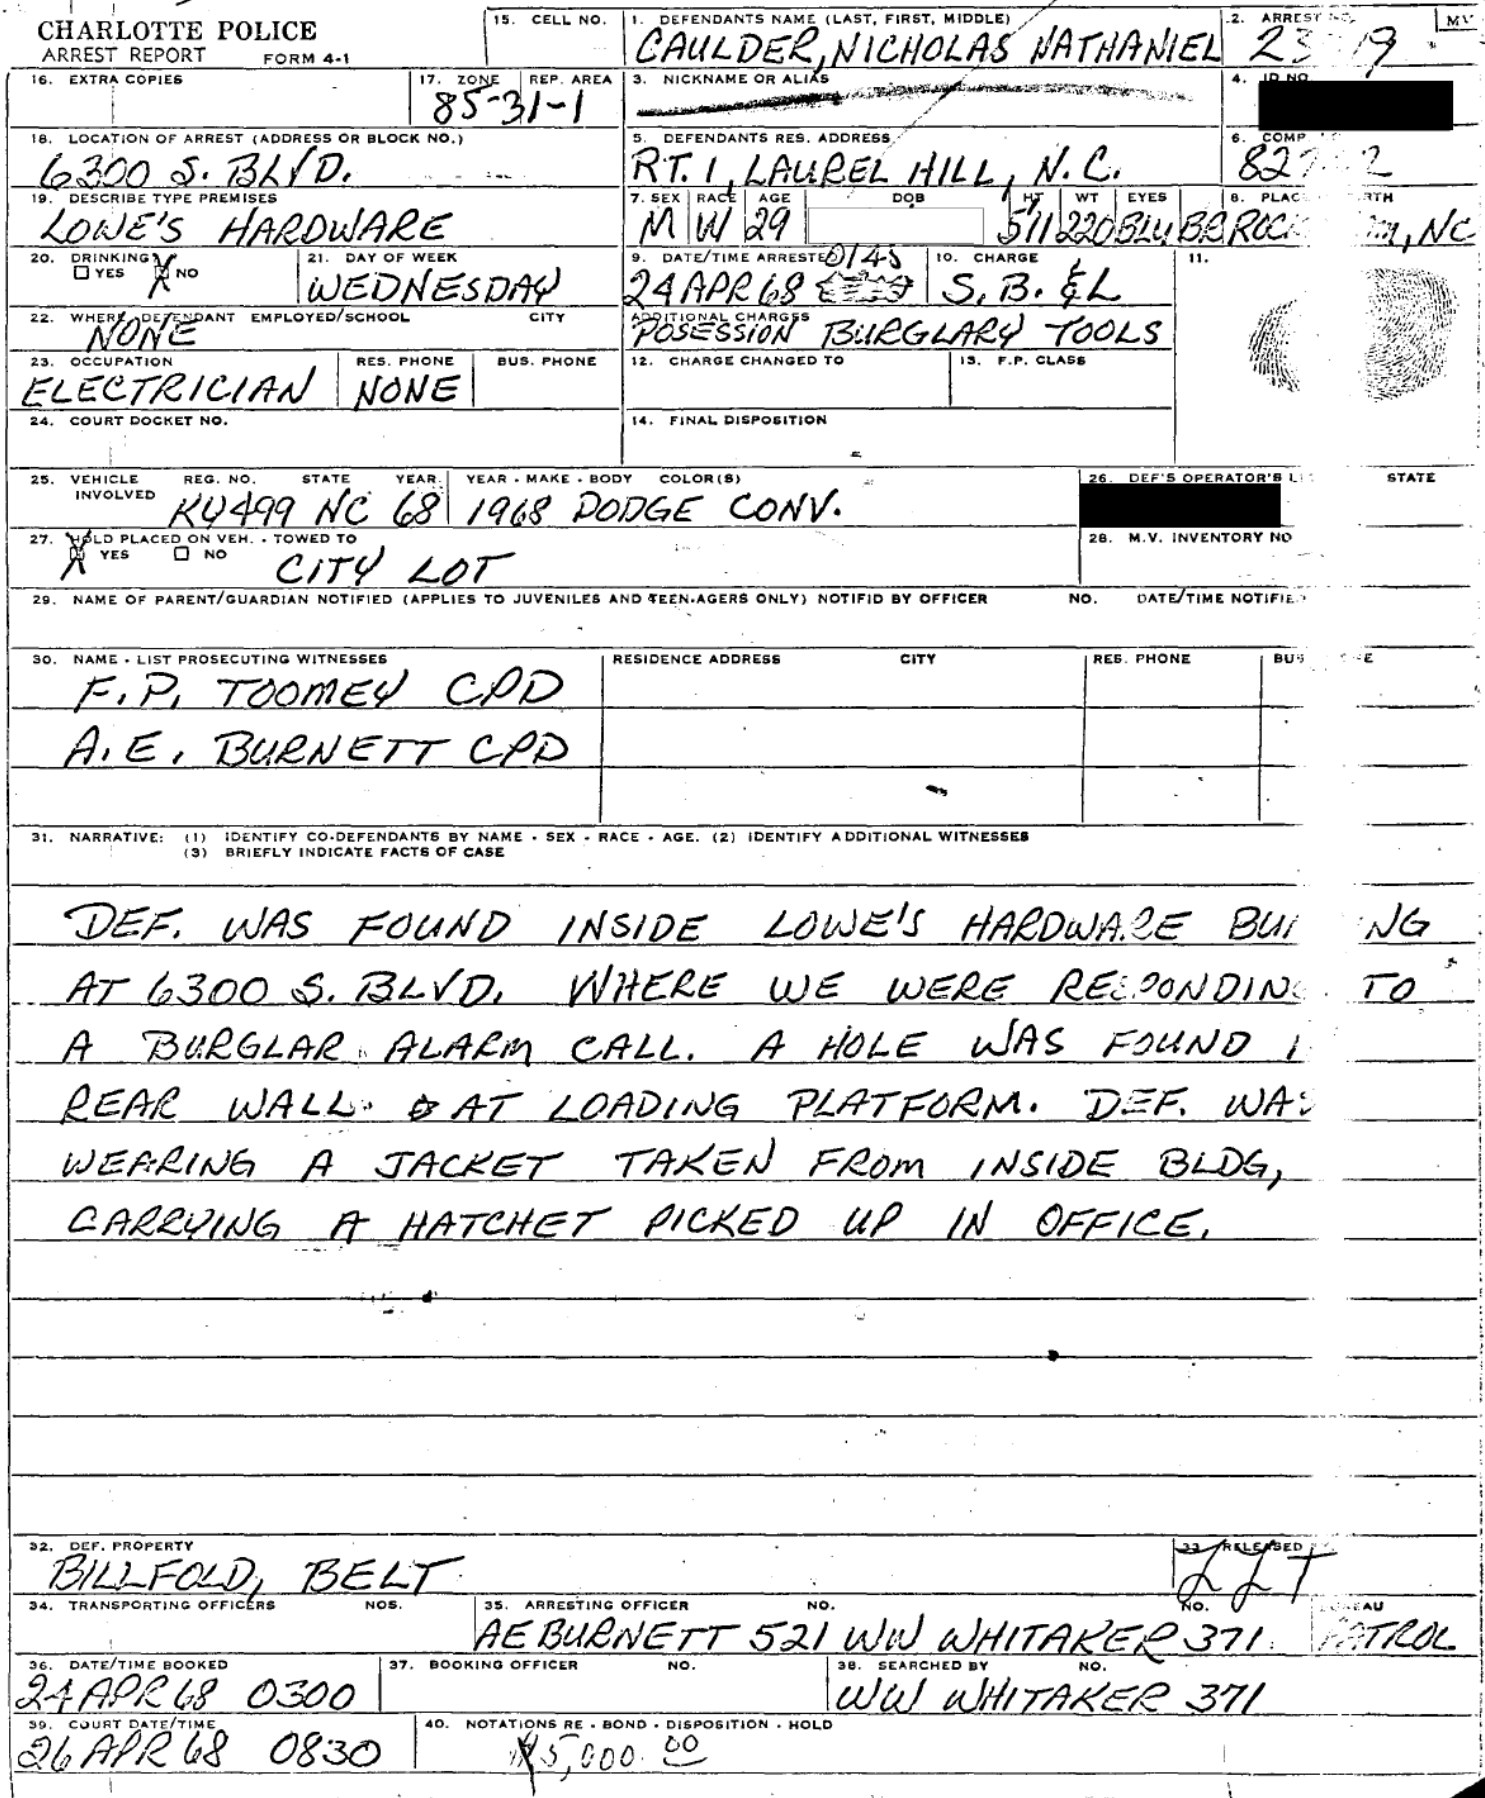 CHARLOTTE POLICE
ARREST REPORT FORM 4-1
15. CELL NO.
1. DEFENDANTS NAME (LAST, FIRST, MIDDLE)
CAULDER, NICHOLAS NATHANIEL
2. ARREST NO.
MV
16. EXTRA COPIES
17. ZONE REP. AREA
85-31-1
3. NICKNAME OR ALIAS
4. ID NO
18. LOCATION OF ARREST (ADDRESS OR BLOCK NO.)
6300 S. BLVD.
5. DEFENDANTS RES. ADDRESS
RT. 1, LAUREL HILL, N.C.
6. COMP
19. DESCRIBE TYPE PREMISES
LOWE'S HARDWARE
7. SEX RACE AGE DOB HT WT EYES
M W 29 511 220 BLU BR
8. PLAC RTH
ROCK M, NC
20. DRINKING
YES X NO
21. DAY OF WEEK
WEDNESDAY
9. DATE/TIME ARRESTED 0145
24 APR 68
10. CHARGE
S. B. & L
11.
22. WHERE DEFENDANT EMPLOYED/SCHOOL CITY
NONE
ADDITIONAL CHARGES
POSESSION BURGLARY TOOLS
23. OCCUPATION RES. PHONE BUS. PHONE
ELECTRICIAN NONE
12. CHARGE CHANGED TO
13. F.P. CLASS
24. COURT DOCKET NO.
14. FINAL DISPOSITION
25. VEHICLE INVOLVED REG. NO. STATE YEAR YEAR - MAKE - BODY COLOR(S)
KY499 NC 68 1968 DODGE CONV.
26. DEF'S OPERATOR'S LI STATE
27. HOLD PLACED ON VEH. - TOWED TO
X YES NO CITY LOT
28. M.V. INVENTORY NO
29. NAME OF PARENT/GUARDIAN NOTIFIED (APPLIES TO JUVENILES AND TEEN-AGERS ONLY) NOTIFID BY OFFICER NO. DATE/TIME NOTIFIED
30. NAME - LIST PROSECUTING WITNESSES RESIDENCE ADDRESS CITY RES. PHONE BUS E
F. P. TOOMEY CPD
A. E. BURNETT CPD
31. NARRATIVE: (1) IDENTIFY CO-DEFENDANTS BY NAME - SEX - RACE - AGE. (2) IDENTIFY ADDITIONAL WITNESSES
(3) BRIEFLY INDICATE FACTS OF CASE
DEF. WAS FOUND INSIDE LOWE'S HARDWARE BUI NG
AT 6300 S. BLVD. WHERE WE WERE RESPONDING TO
A BURGLAR ALARM CALL. A HOLE WAS FOUND I
REAR WALL AT LOADING PLATFORM. DEF. WAS
WEARING A JACKET TAKEN FROM INSIDE BLDG,
CARRYING A HATCHET PICKED UP IN OFFICE.
32. DEF. PROPERTY
BILLFOLD, BELT
33. RELEASED
34. TRANSPORTING OFFICERS NOS.
35. ARRESTING OFFICER NO. NO. BUREAU
AE BURNETT 521 WW WHITAKER 371 PATROL
36. DATE/TIME BOOKED
24 APR 68 0300
37. BOOKING OFFICER NO.
38. SEARCHED BY NO.
WW WHITAKER 371
39. COURT DATE/TIME
26 APR 68 0830
40. NOTATIONS RE - BOND - DISPOSITION - HOLD
$5,000.00